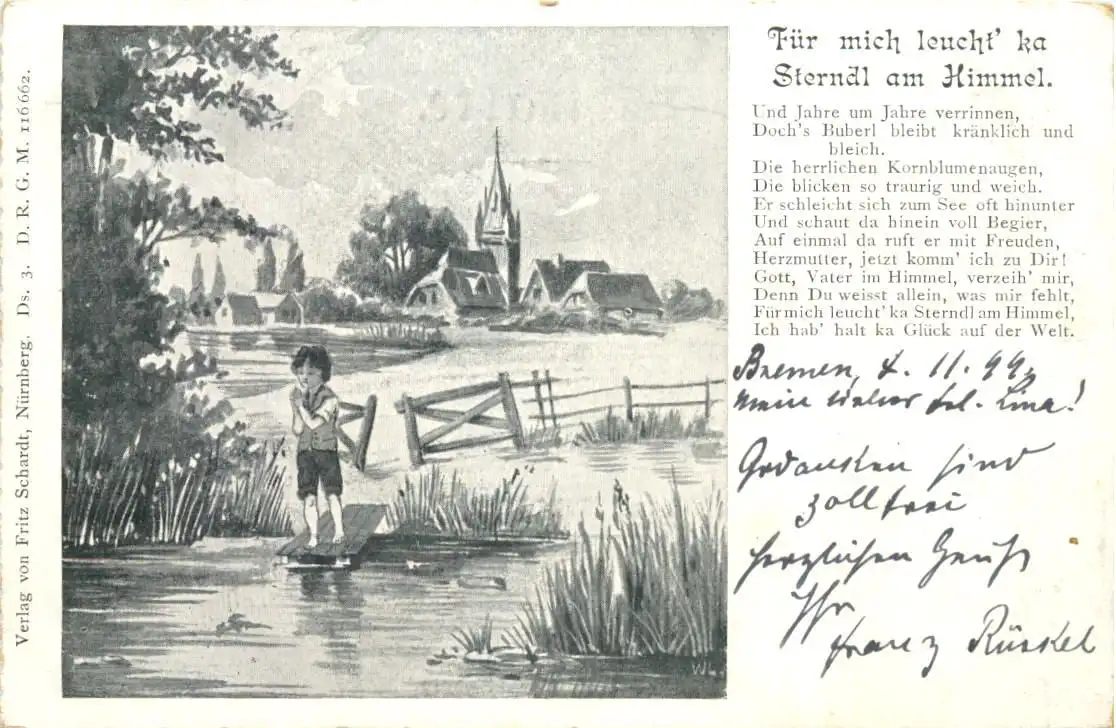 Für mich leucht' ka
Sterndl am Himmel.
Und Jahre um Jahre verrinnen,
Doch's Buberl bleibt kränklich und
bleich.
Die herrlichen Kornblumenaugen,
Die blicken so traurig und weich.
Er schleicht sich zum See oft hinunter
Und schaut da hinein voll Begier,
Auf einmal da ruft er mit Freuden,
Herzmutter, jetzt komm' ich zu Dir!
Gott, Vater im Himmel, verzeih' mir,
Denn Du weisst allein, was mir fehlt,
Für mich leucht' ka Sterndl am Himmel,
Ich hab' halt ka Glück auf der Welt.
Bremen, 4. 11. 99.
Mein lieber Lina!
Gedanken sind
zollfrei
herzlichen Gruß
Ihr
Franz Rüskel
Verlag von Fritz Schardt, Nürnberg. Ds. 3. D. R. G. M. 116662.